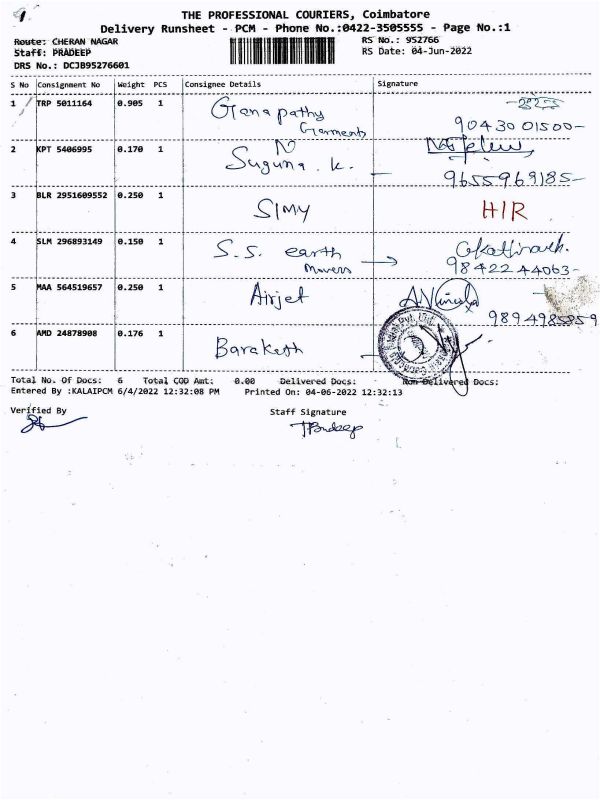 THE PROFESSIONAL COURIERS, Coimbatore
Delivery Runsheet - PCM - Phone No.:0422-3505555 - Page No.:1
Route: CHERAN NAGAR
RS No.: 952766
Staff: PRADEEP
RS Date: 04-Jun-2022
DRS No.: DCJB95276601
S No Consignment No Weight PCS Consignee Details Signature
1 TRP 5011164 0.905 1 Ganapathy
Garments
90430 01500-
2 KPT 5406995 0.170 1 N
Suguna. k.
9655969185-
3 BLR 2951609552 0.250 1 SIMY HIR
4 SLM 296893149 0.150 1 S.S. earth
Movers
98422 44063-
5 MAA 564519657 0.250 1 Airjet
9894985859
6 AMD 24878908 0.176 1 Baraketh
Total No. Of Docs: 6 Total COD Amt: 0.00 Delivered Docs: Non Delivered Docs:
Entered By :KALAIPCM 6/4/2022 12:32:08 PM Printed On: 04-06-2022 12:32:13
Verified By Staff Signature